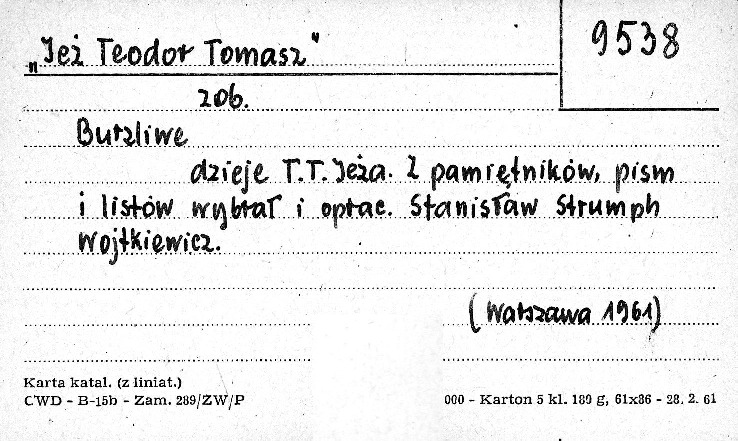 „Jeż Teodor Tomasz"
9538
zob.
Burzliwe
dzieje T.T. Jeża. Z pamiętników, pism
i listów wybrał i oprac. Stanisław Strumph
Wojtkiewicz.
(Warszawa 1961)
Karta katal. (z liniat.)
CWD - B-15b - Zam. 289/ZW/P
000 - Karton 5 kl. 180 g, 61x86 - 28. 2. 61